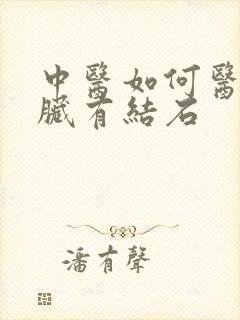 中醫如何醫
臟有結石
潘有聲